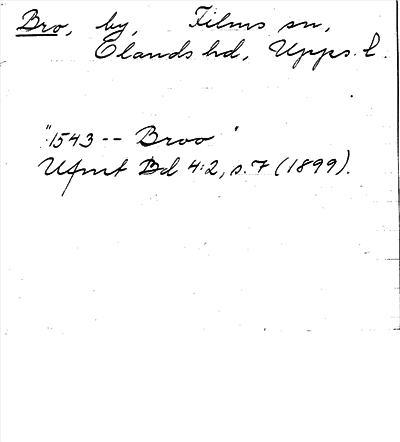 Bro, by, Films sn,
Olands hd, Upps. l.
"1543 -- Broo"
Ufmt Bd 4:2, s. 7 (1899).